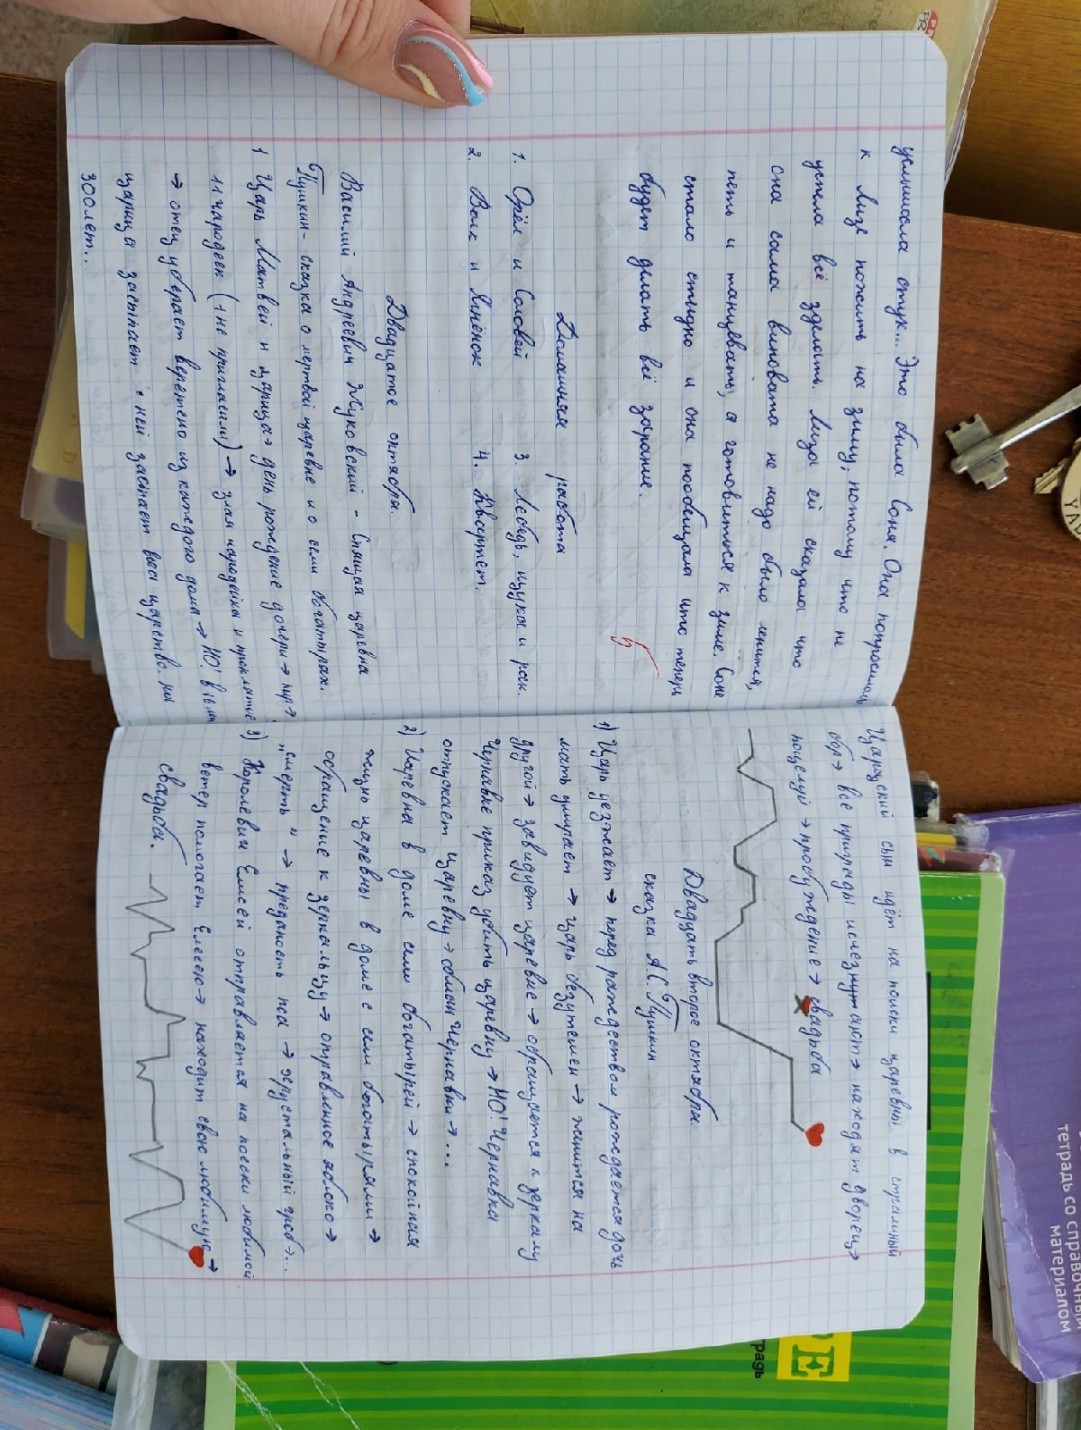 услышала стук... Это была Соня. Она попросилась
к Лизе пожить на зиму, потому что не
успела всё зделать. Лиза ей сказала что
она сама виновата не надо было ленится,
петь и танцевать, а готовиться к зиме. Соне
стало стыдно и она пообещала что теперь
будет делать всё заранее.
5
Домашняя работа
1. Орёл и Соловей 3. Лебедь, щука и рак.
2. Волк и Ягнёнок 4. Квартет.
Двадцатое октября.
Василий Андреевич Жуковский - Спящая царевна
Пушкин - сказка о мертвой царевне и о семи богатырях.
1 Царь Матвей и царица → день рождение дочери → пир →
11 чародеек (1 не пригласили) → злая чародейка и проклятие
→ отец уберает веретено из каждого дома → НО! в 16 лет
царица застыает с ней застает весь царство на
300 лет...
Царский сын идёт на поиски царевны в страшный
бор → все преграды исчезнут → находят дворец →
поцелуй → пробуждение → свадьба
Двадцать второе октября
сказка А.С. Пушкин
1) Царь уезжает → перед рождеством рождается дочь
мать умирает → царь безутешен → женится на
другой → завидует царевне → обращается к зеркалу
Чернавке приказ убить царевну → НО! Чернавка
отпускает царевну → обман Чернавки → ...
2) Царевна в доме семи богатырей → спокойная
жизнь царевны в доме с семи богатырями →
обращение к зеркальцу → отравленное яблоко →
„смерть" → преданность пса → хрустальный гроб → ...
3) Королевич Елисей отправляется на поиски любимой
ветер помогает Елесею → находит свою любимую →
свадьба.
тетрадь со справочным
материалом
традь